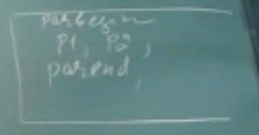 parbegin
P1, P2,
parend,